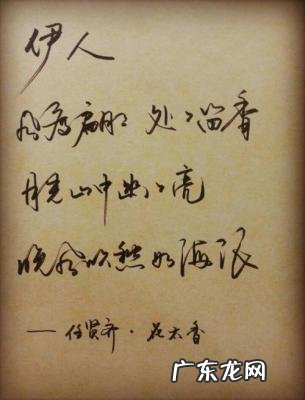 伊人
风度翩翩 处处留香
月光山中幽幽亮
晚风吹愁如海浪
——任贤齐·花太香
广东龙网